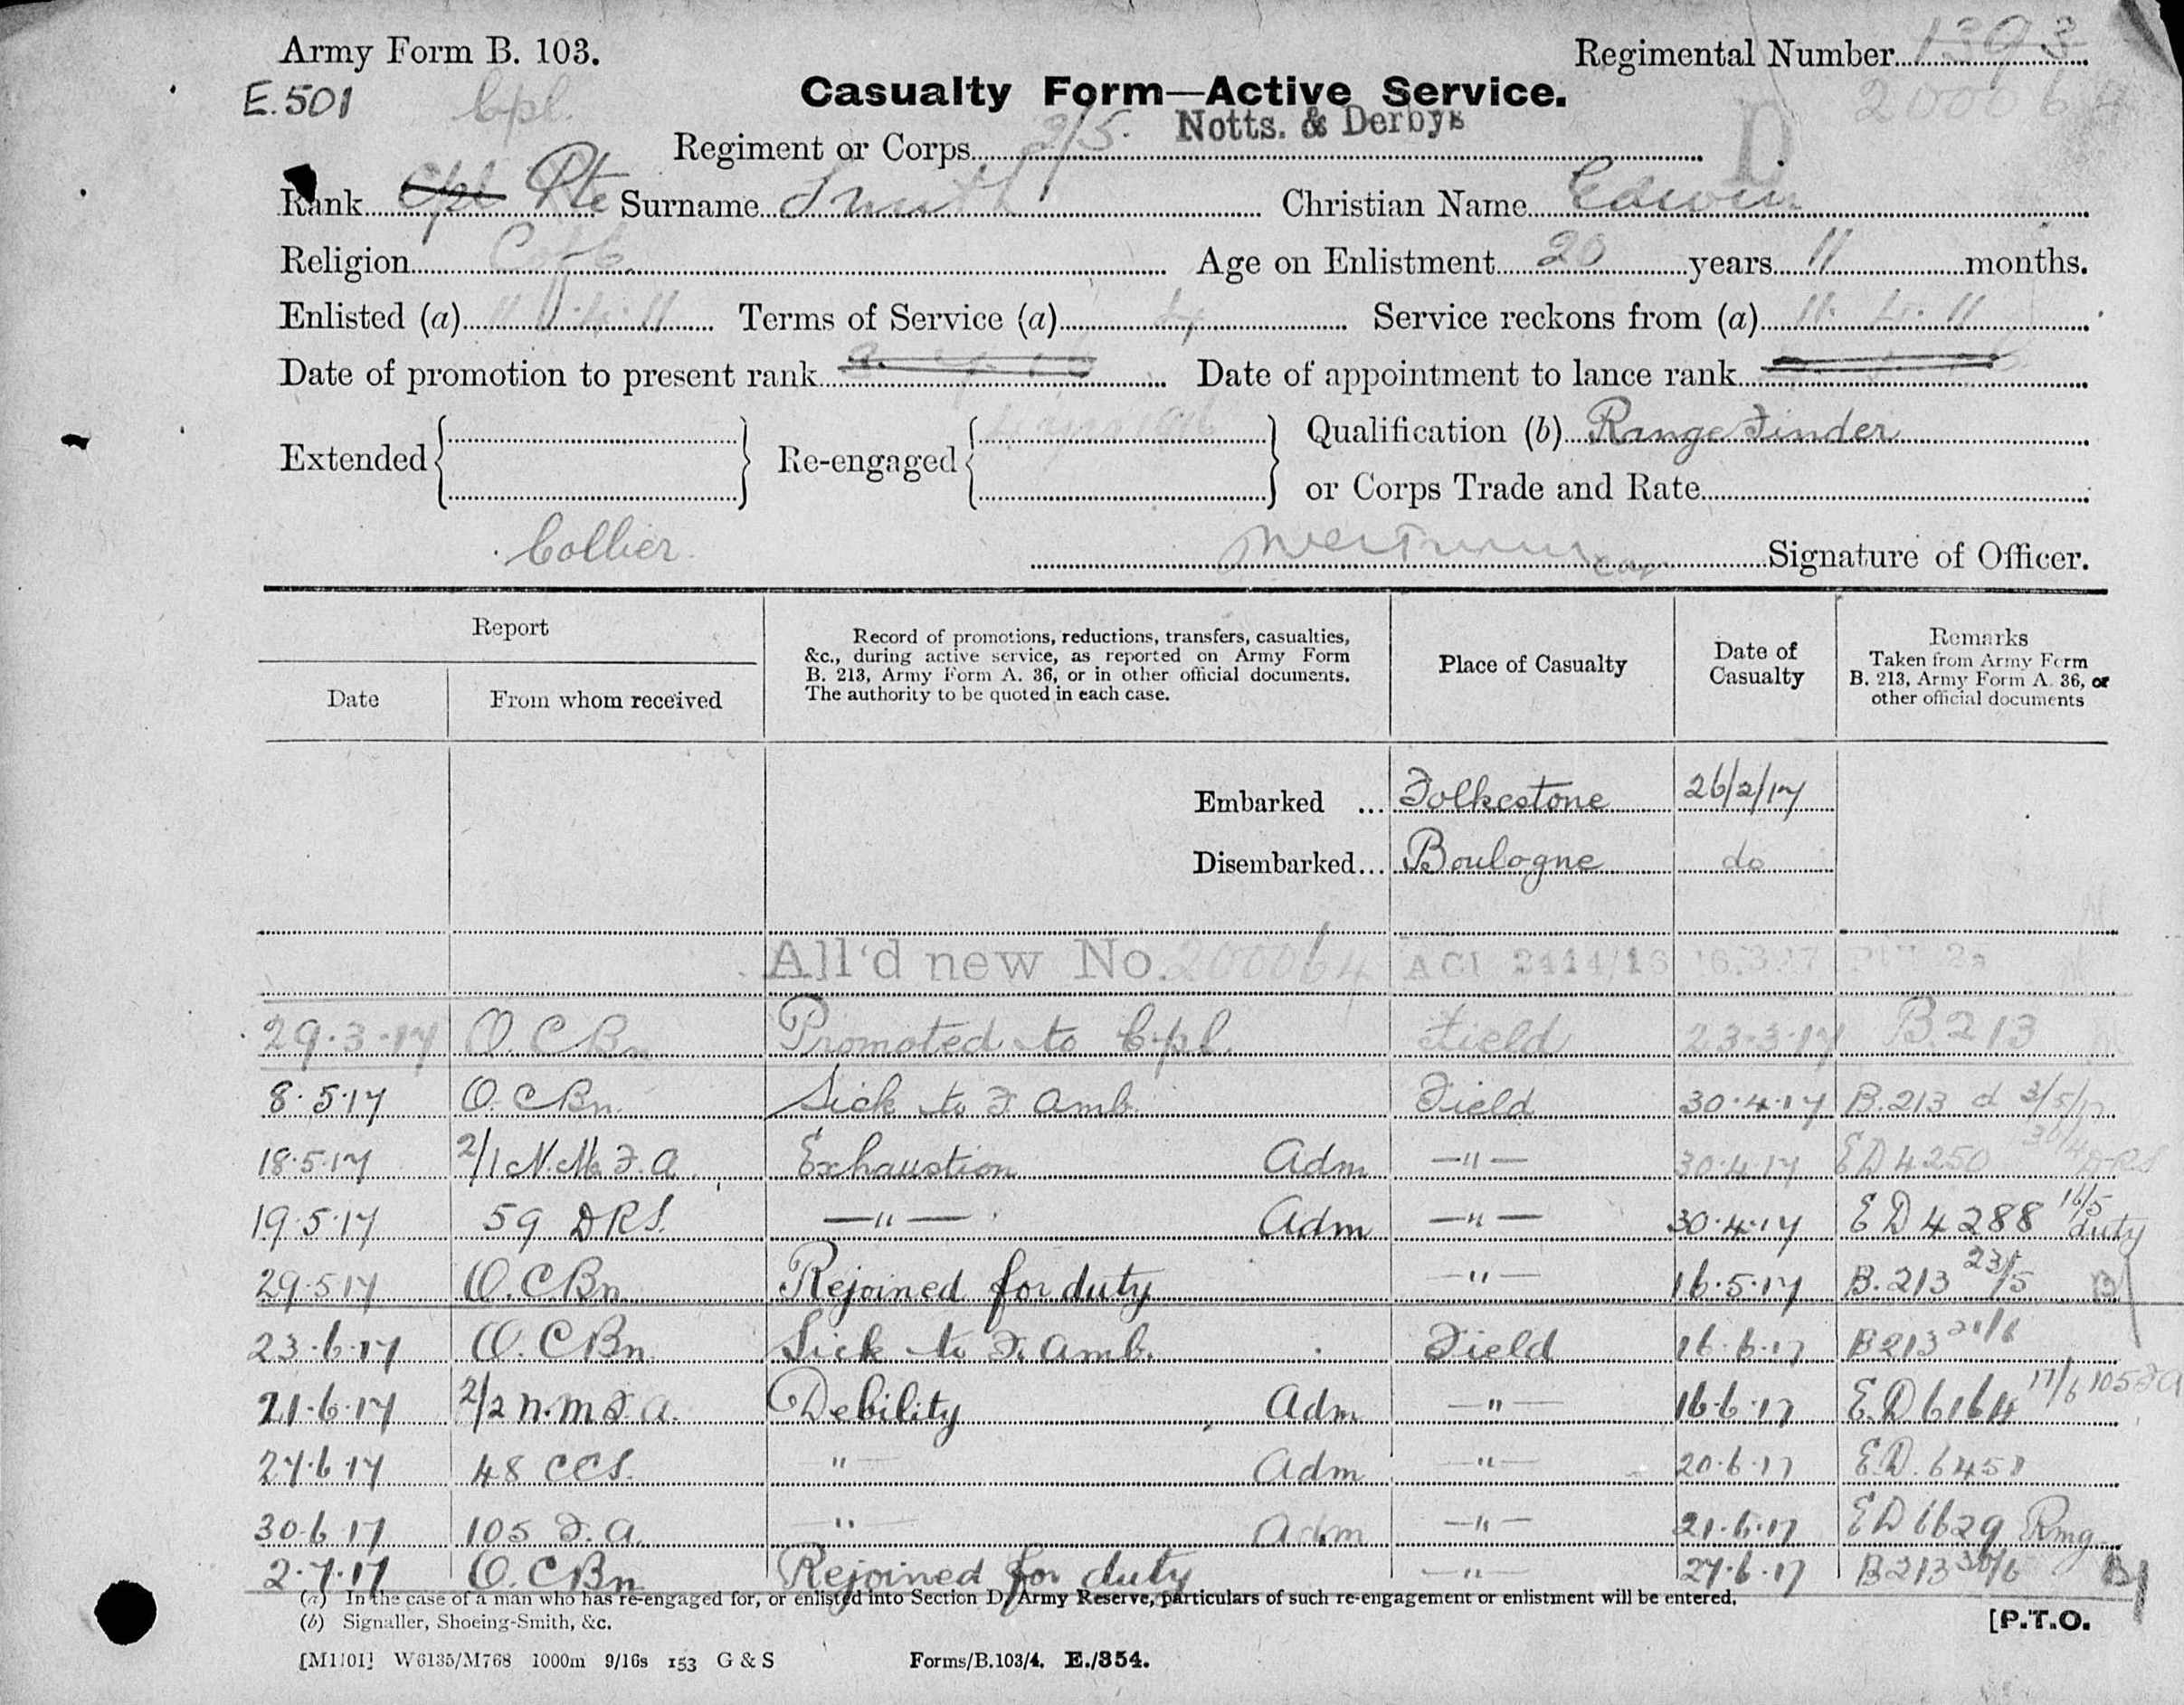 Army Form B. 103. Regimental Number 1393
E.501 Cpl. Casualty Form—Active Service. 200064
Regiment or Corps 2/5. Notts. & Derbys D
Rank Cpl Pte Surname Smith Christian Name Edwin
Religion C of E Age on Enlistment 20 years 11 months.
Enlisted (a) 11.4.11 Terms of Service (a) 4 Service reckons from (a) 11.4.11
Date of promotion to present rank Date of appointment to lance rank
Extended Re-engaged Qualification (b) Range Finder
or Corps Trade and Rate
Collier Signature of Officer.
Report Record of promotions, reductions, transfers, casualties, &c., during active service, as reported on Army Form B. 213, Army Form A. 36, or in other official documents. The authority to be quoted in each case. Place of Casualty Date of Casualty Remarks Taken from Army Form B. 213, Army Form A. 36, or other official documents
Date From whom received
Embarked ... Folkestone 26/2/17
Disembarked... Boulogne do
All'd new No. 200064 ACI 2414/16
29.3.17 O.C Bn Promoted to Cpl Field 23.3.17 B.213
8.5.17 O.C Bn. Sick to F. Amb. Field 30.4.17 B.213 d 3/5/17
18.5.17 2/1 N.M. F.A. Exhaustion Adm —"— 30.4.17 ED 4250 30/4 DRS
19.5.17 59 DRS. —"— Adm —"— 30.4.17 ED 4288 16/5 duty
29.5.17 O.C Bn Rejoined for duty —"— 16.5.17 B.213 23/5 B
23.6.17 O.C Bn Sick to F. Amb. Field 16.6.17 B213 21/6
21.6.17 2/2 N.M F.A. Debility Adm —"— 16.6.17 E.D 6164 17/6 105 FA
27.6.17 48 CCS. " Adm —"— 20.6.17 ED. 6451
30.6.17 105 F.A. —"— Adm —"— 21.6.17 ED 6629 Rmg
2.7.17 O.C Bn Rejoined for duty —"— 27.6.17 B213 30/6 B
(a) In the case of a man who has re-engaged for, or enlisted into Section D, Army Reserve, particulars of such re-engagement or enlistment will be entered.
(b) Signaller, Shoeing-Smith, &c. [P.T.O.
[M1101] W6135/M768 1000m 9/16s 153 G & S Forms/B.103/4. E./354.